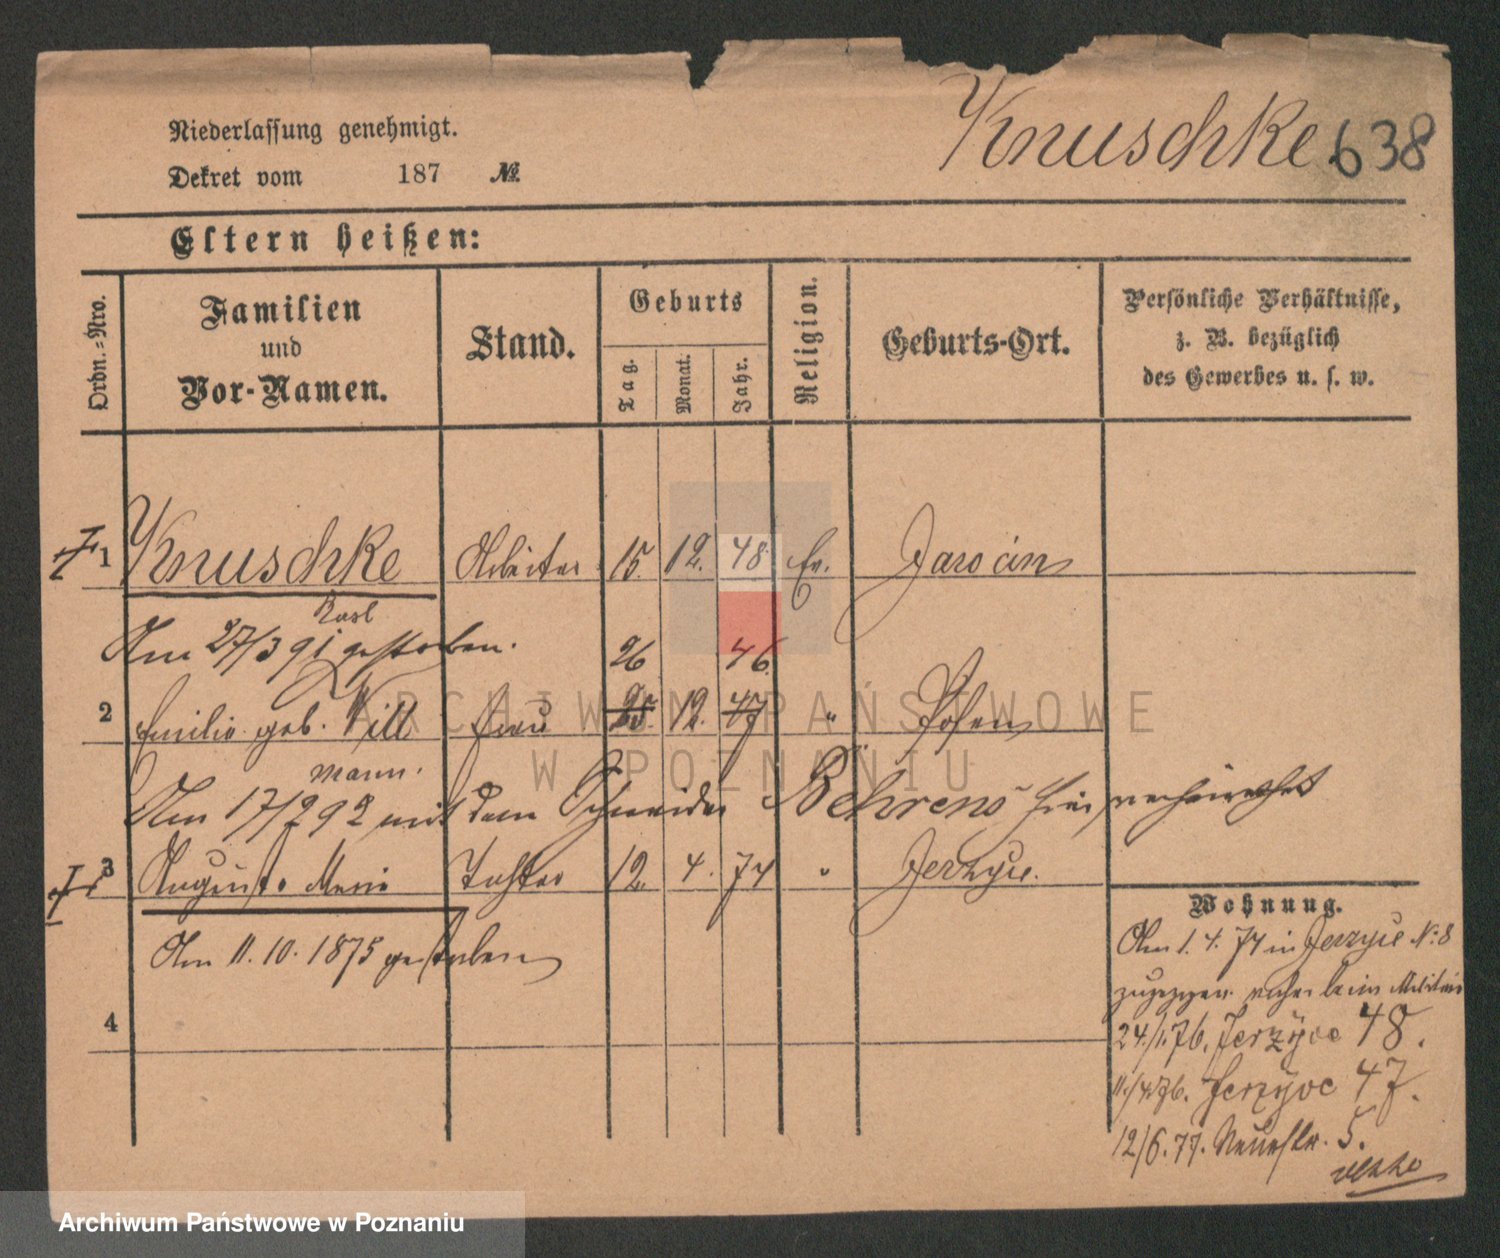 Knuschke 638
Niederlassung genehmigt.
Dekret vom 187 №
Eltern heißen:
Ordn.-Nro.
Familien
und
Vor-Namen.
Stand.
Geburts
Tag. Monat. Jahr.
Religion.
Geburts-Ort.
Persönliche Verhältnisse,
z. B. bezüglich
des Gewerbes u. s. w.
1 Knuschke Arbeiter 15. 12. 48. Ev. Jarocin
Karl
Am 27/3 91 gestorben.
26 46
2 Emilie geb. Will Frau 25. 12. 47 " Posen
Mann.
Am 17/2 92 mit dem Schneider Behrens hier verheirathet
3 Auguste Marie Tochter 12. 4. 74 " Jerzyce.
Am 11. 10. 1875 gestorben
4
Wohnung.
Am 1. 4. 74 in Jerzyce N: 8
zugezogen. vorher beim Militär
24./1.76. Jerzyce 48.
11./4.76. Jerzyce 47.
12/6.77. Neuestr. 5.
ARCHIWUM PAŃSTWOWE
W POZNANIU
Archiwum Państwowe w Poznaniu